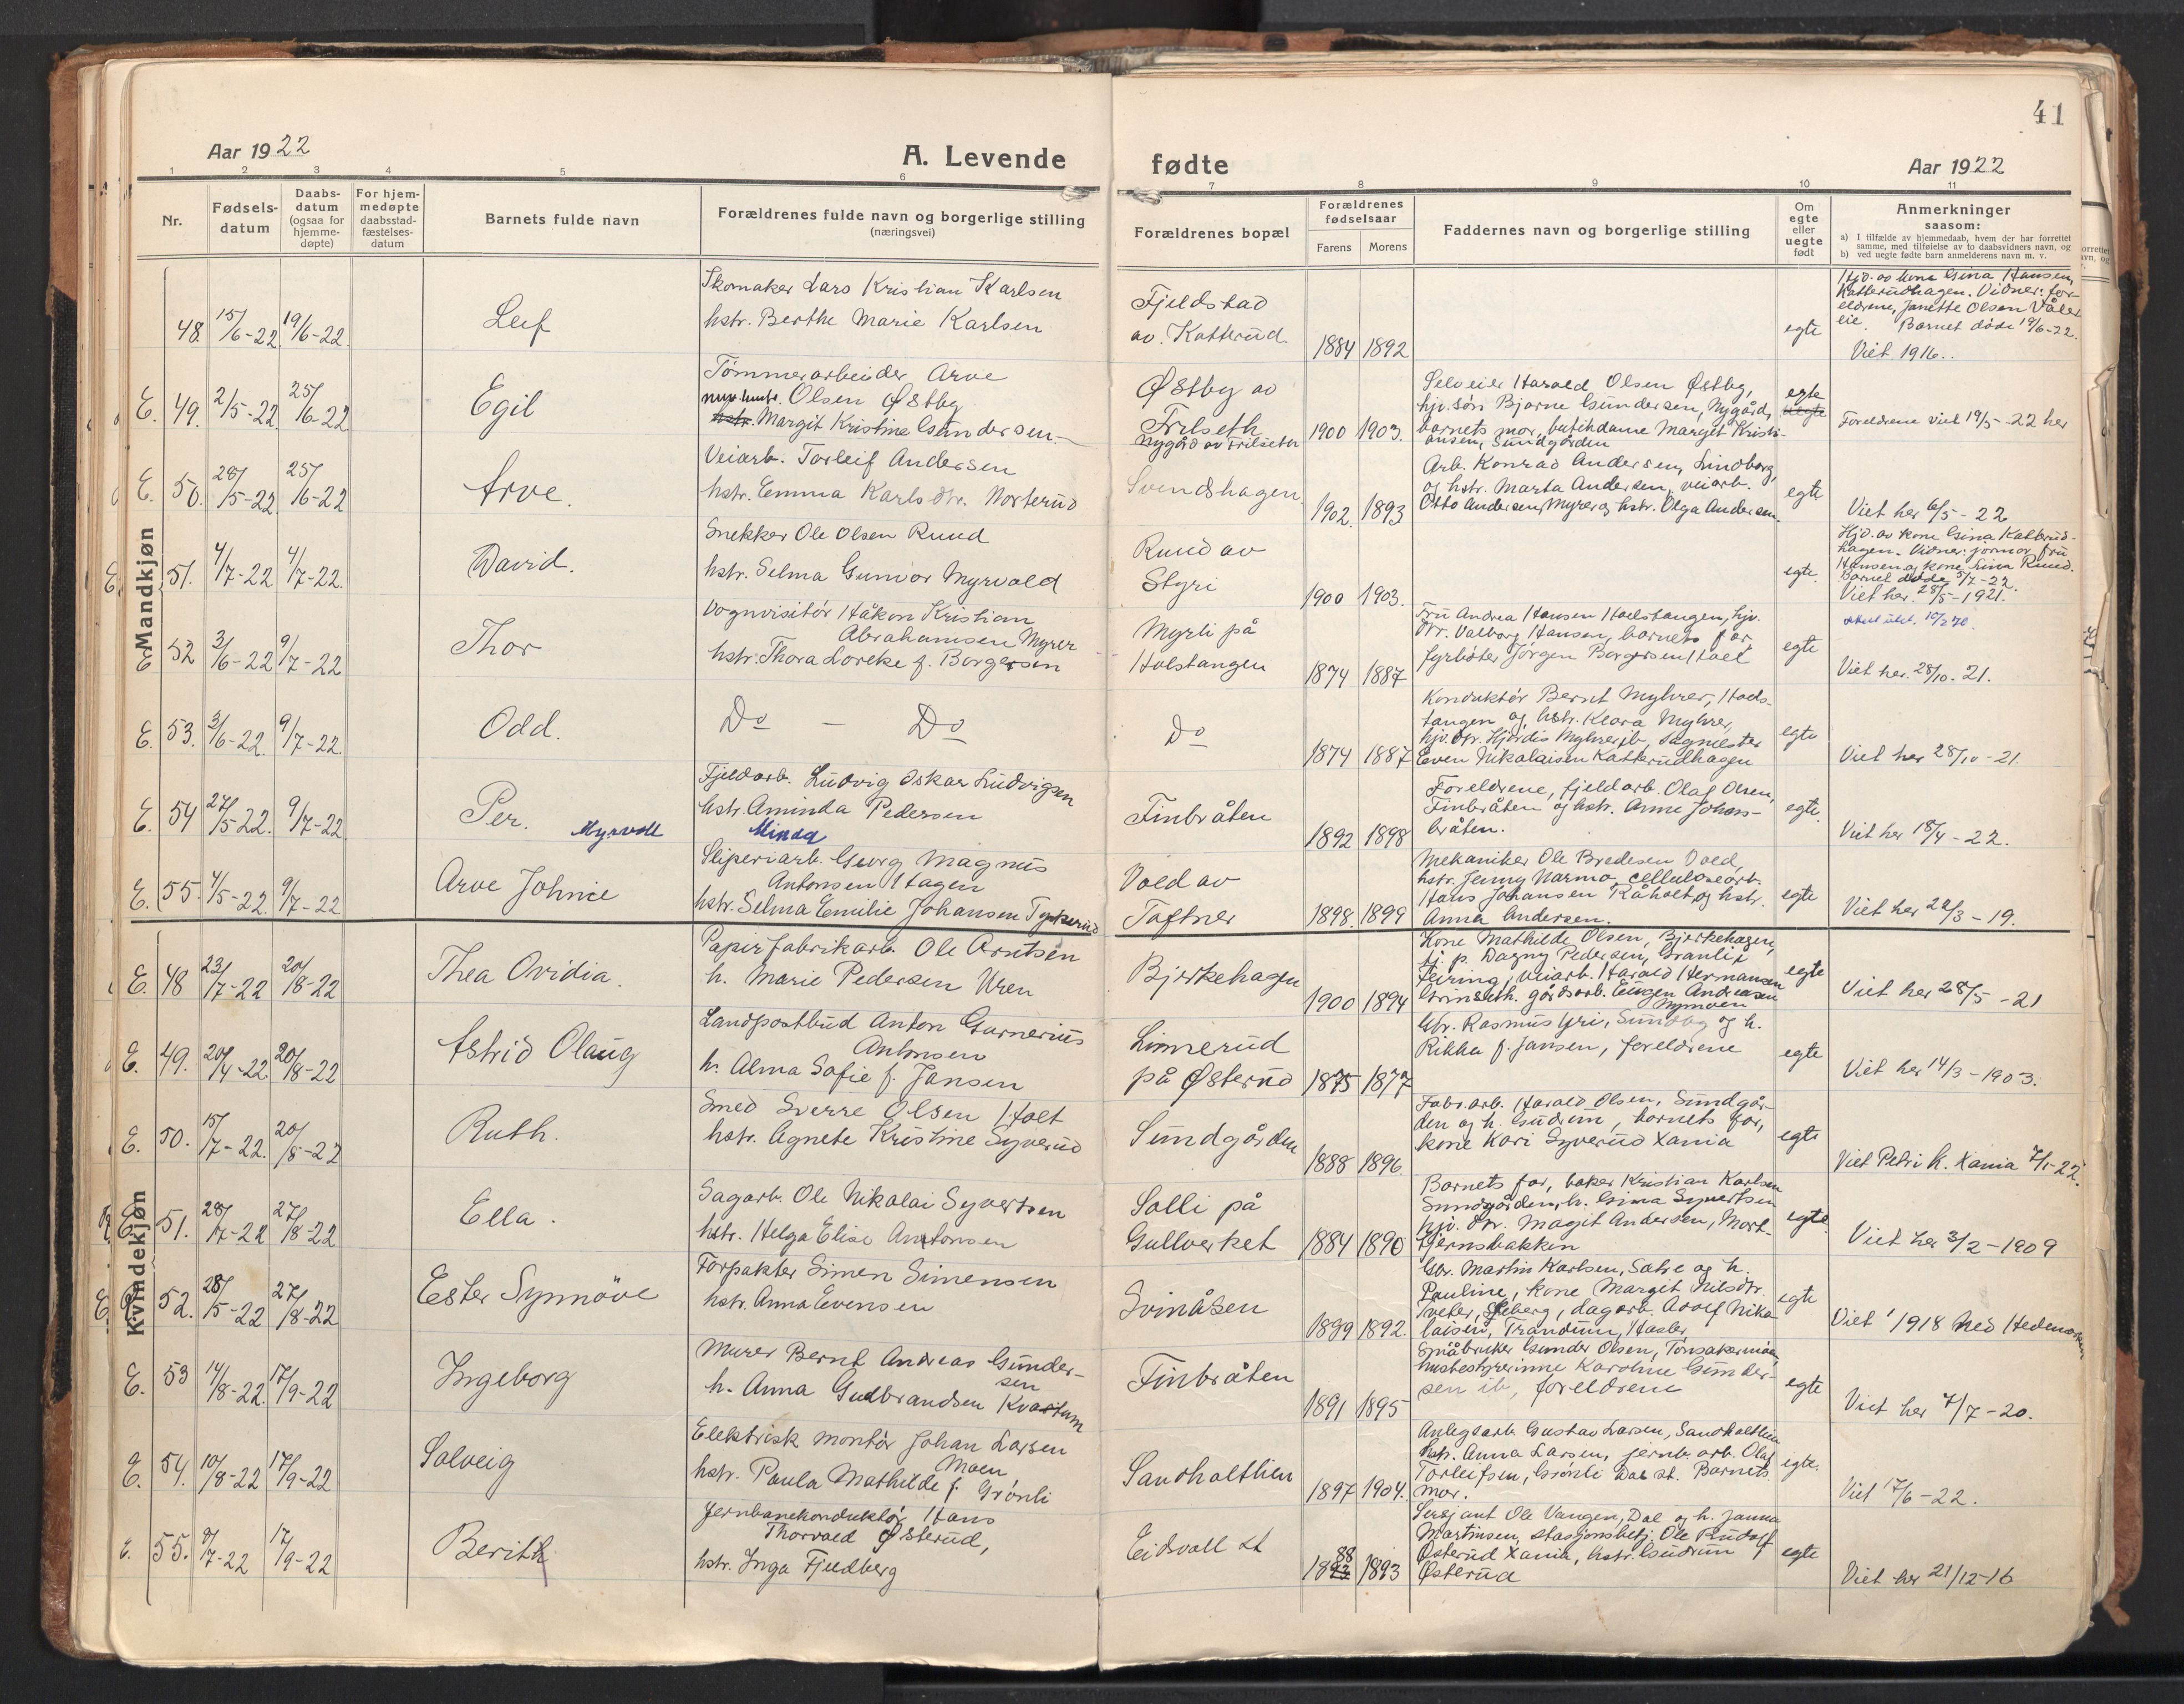 41
Aar 1922
A. Levende
fødte
Aar 1922
1 2 3 4 5 6 7 8 9 10 11
Nr.
Fødsels-
datum
Daabs-
datum
(ogsaa for
hjemme-
døpte)
For hjem-
medøpte
daabsstad-
fæstelses-
datum
Barnets fulde navn
Forældrenes fulde navn og borgerlige stilling
(næringsvei)
Forældrenes bopæl
Forældrenes
fødselsaar
Farens
Morens
Faddernes navn og borgerlige stilling
Om
egte
eller
uegte
født
Anmerkninger
saasom:
a) I tilfælde av hjemmedaab, hvem der har forrettet
samme, med tilføielse av to daabsvidners navn, og
b) ved uegte fødte barn anmelderens navn m. v.
Mandkjøn
48. 15/6-22. 19/6-22.
Leif
Skomaker Lars Kristian Karlsen
hstr. Berthe Marie Karlsen
Fjeldstad
av. Katterud.
1884 1892
egte
Hjd. av kone Gina Hansen,
Katterudhagen. Vidner: for-
eldrene, Janette Olsen Våler
eie. Barnet døde 19/6-22.
Viet 1916..
E. 49. 2/5-22. 25/6-22
Egil
Tømmerarbeider Arve
Olsen Østby
hstr. Margit Kristine Gundersen
Østby av
Frilseth
Nygård av Frilseth
1900 1903.
Selveier Harald Olsen Østby,
hjv. søn Bjarne Gundersen, Nygård,
barnets mor, butikdame Margit Kristi-
ansen, Sundgården
egte
uegte
Foreldrene viet 19/5-22 her
E. 50. 28/5-22. 25/6-22
Arve.
Veiarb. Torleif Andersen
hstr. Emma Karlsdtr. Norterud
Svendshagen
1902. 1893
Arb. Konrad Andersen, Lindborg,
og hstr. Marta Andersen, veiarb.
Otto Andersen, Myrer og hstr. Olga Andersen.
egte
Viet her 6/5-22
E. 51. 4/7-22 4/7-22.
David.
Snekker Ole Olsen Ruud
hstr. Selma Gunvor Myrvold
Ruud av
Styri
1900 1903.
egte.
Hjd. av kone Gina Katterud-
hagen. Vidner: jormor fru
Hansen og kone Lina Ruud.
Barnet døde 5/7-22.
Viet her. 28/5-1921.
E. 52 3/6-22 9/7-22
Thor
Vognvisitør Håkon Kristian
Abrahamsen Myrer
hstr. Thora Loreke f. Borgersen
Myrli på
Holstangen
1874 1887
Fru Andrea Hansen Holstangen, hjv.
dtr. Valborg Hansen, barnets far
fyrbøter Jørgen Borgersen Holt
egte
Viet her. 28/10.21.
E. 53. 3/6-22. 9/7-22.
Odd.
Do – Do
Do
1874 1887
Konduktør Bernt Myhrer, Hols-
tangen og hstr. Klara Myhrer,
hjv. dtr. Hjørdis Myhrer ib. vognlester
Even Nikolaisen Katterudhagen
egte
Viet her 28/10-21.
E. 54 27/5-22. 9/7-22
Per. Myrvold
Fjeldarb. Ludvig Oskar Ludvigsen
hstr. Aminda Pedersen
Minda
Finbråten
1892 1898
Foreldrene, fjeldarb. Olaf Olsen,
Finbråten og hstr. Anne Johans-
bråten.
egte.
Viet her 18/4-22.
E. 55. 4/5-22. 9/7-22
Arve Johnie
Sliperiarb. Georg Magnus
Antonsen Hagen
hstr. Selma Emilie Johansen Tyskerud
Vold av
Toftner
1898. 1899
Mekaniker Ole Bredesen Vold,
hstr. Jenny Narmo, cellulosearb.
Hans Johansen Råholt og hstr.
Anna Andersen.
egte
Viet her 22/3-19.
Kvindekjøn
E. 48 23/7-22 20/8-22
Thea Ovidia.
Papirfabrikarb. Ole Arntsen
h. Marie Pedersen Uren
Bjerkehagen
1900 1894
Kone Mathilde Olsen, Bjerkehagen,
tj. p. Dagny Pedersen, Granli i
Feiring, veiarb. Harald Hermansen
Grinseth. gårdsarb. Eugen Andreasen
Nymoen
egte
Viet her 28/5-21
E. 49. 20/4-22. 20/8-22
Astrid Olaug
Landpostbud Anton Gurnerius
Antonsen
h. Alma Sofie f. Jansen
Limerud
på Østerud
1875 1877
Gbr. Rasmus Yri, Sundby og h.
Rikka f. Jansen, foreldrene
egte
Viet her 14/3-1903.
E. 50. 15/7-22. 20/8-22
Ruth.
Smed Sverre Olsen Holt
hstr. Agnete Kristine Syverud
Sundgården
1888 1896.
Fabr.arb. Harald Olsen, Sundgår-
den og h. Gudrun, barnets far,
kone Kari Syverud Xania
egte
Viet Petri K. Xania 7/1-22.
E. 51. 28/7-22 27/8-22
Ella.
Sagarb. Ole Nikolai Syvertsen
hstr. Helga Elise Antonsen
Solli på
Gullverket
1884 1890
Barnets far, baker Kristian Karlsen
Sundgården, h. Gina Syvertsen
hjv. dtr. Magit Andersen, Mort-
tjernsbakken
egte.
Viet her 3/2-1909
E. 52. 28/5-22 27/8-22
Ester Synnöve
Forpakter Simen Simensen
hstr. Anna Evensen
Svinåsen
1899 1892.
Gbr. Martin Karlsen, Satre og h.
Pauline, kone Margit Nilsdtr.
Tveter, dagarb. Adolf Nika-
laisen, Trandum,
egte
Viet 1918 Nes Hedemarken
E. 53 14/8-22. 17/9-22
Ingeborg
Murer Bernt Andreas Gunder-
sen
h. Anna Gudbrandsen Kvartum
Finbråten
1891 1895
Småbruker Gunder Olsen, Torsakermoen,
husbestyrerinne Karoline Gunder-
sen ib., foreldrene
egte
Viet her 4/7-20.
E. 54. 10/8-22 17/9-22
Solveig
Elektrisk montør Johan Larsen
Moen
hstr. Paula Mathilde f. Grønli
Sandholtlien
1897 1904.
Anlegsarb Gustav Larsen, Sandholtlien
hstr. Anna Larsen, jernb. arb. Olaf
Torleifsen, Grønli Dal st. Barnets
mor.
egte.
Viet 17/6-22.
E. 55. 9/7-22 17/9-22
Berith
Jernbanekonduktør Hans
Thorvald Østerud,
hstr. Inga Fjeldberg
Eidsvoll st
88
1893 1893
Sersjant Ole Vangen, Dal og h. Janna
Martinsen, stasjonsbetj. Ole Rudolf
Østerud Xania, hstr. Gudrun
Østerud
egte
Viet her 21/12-16